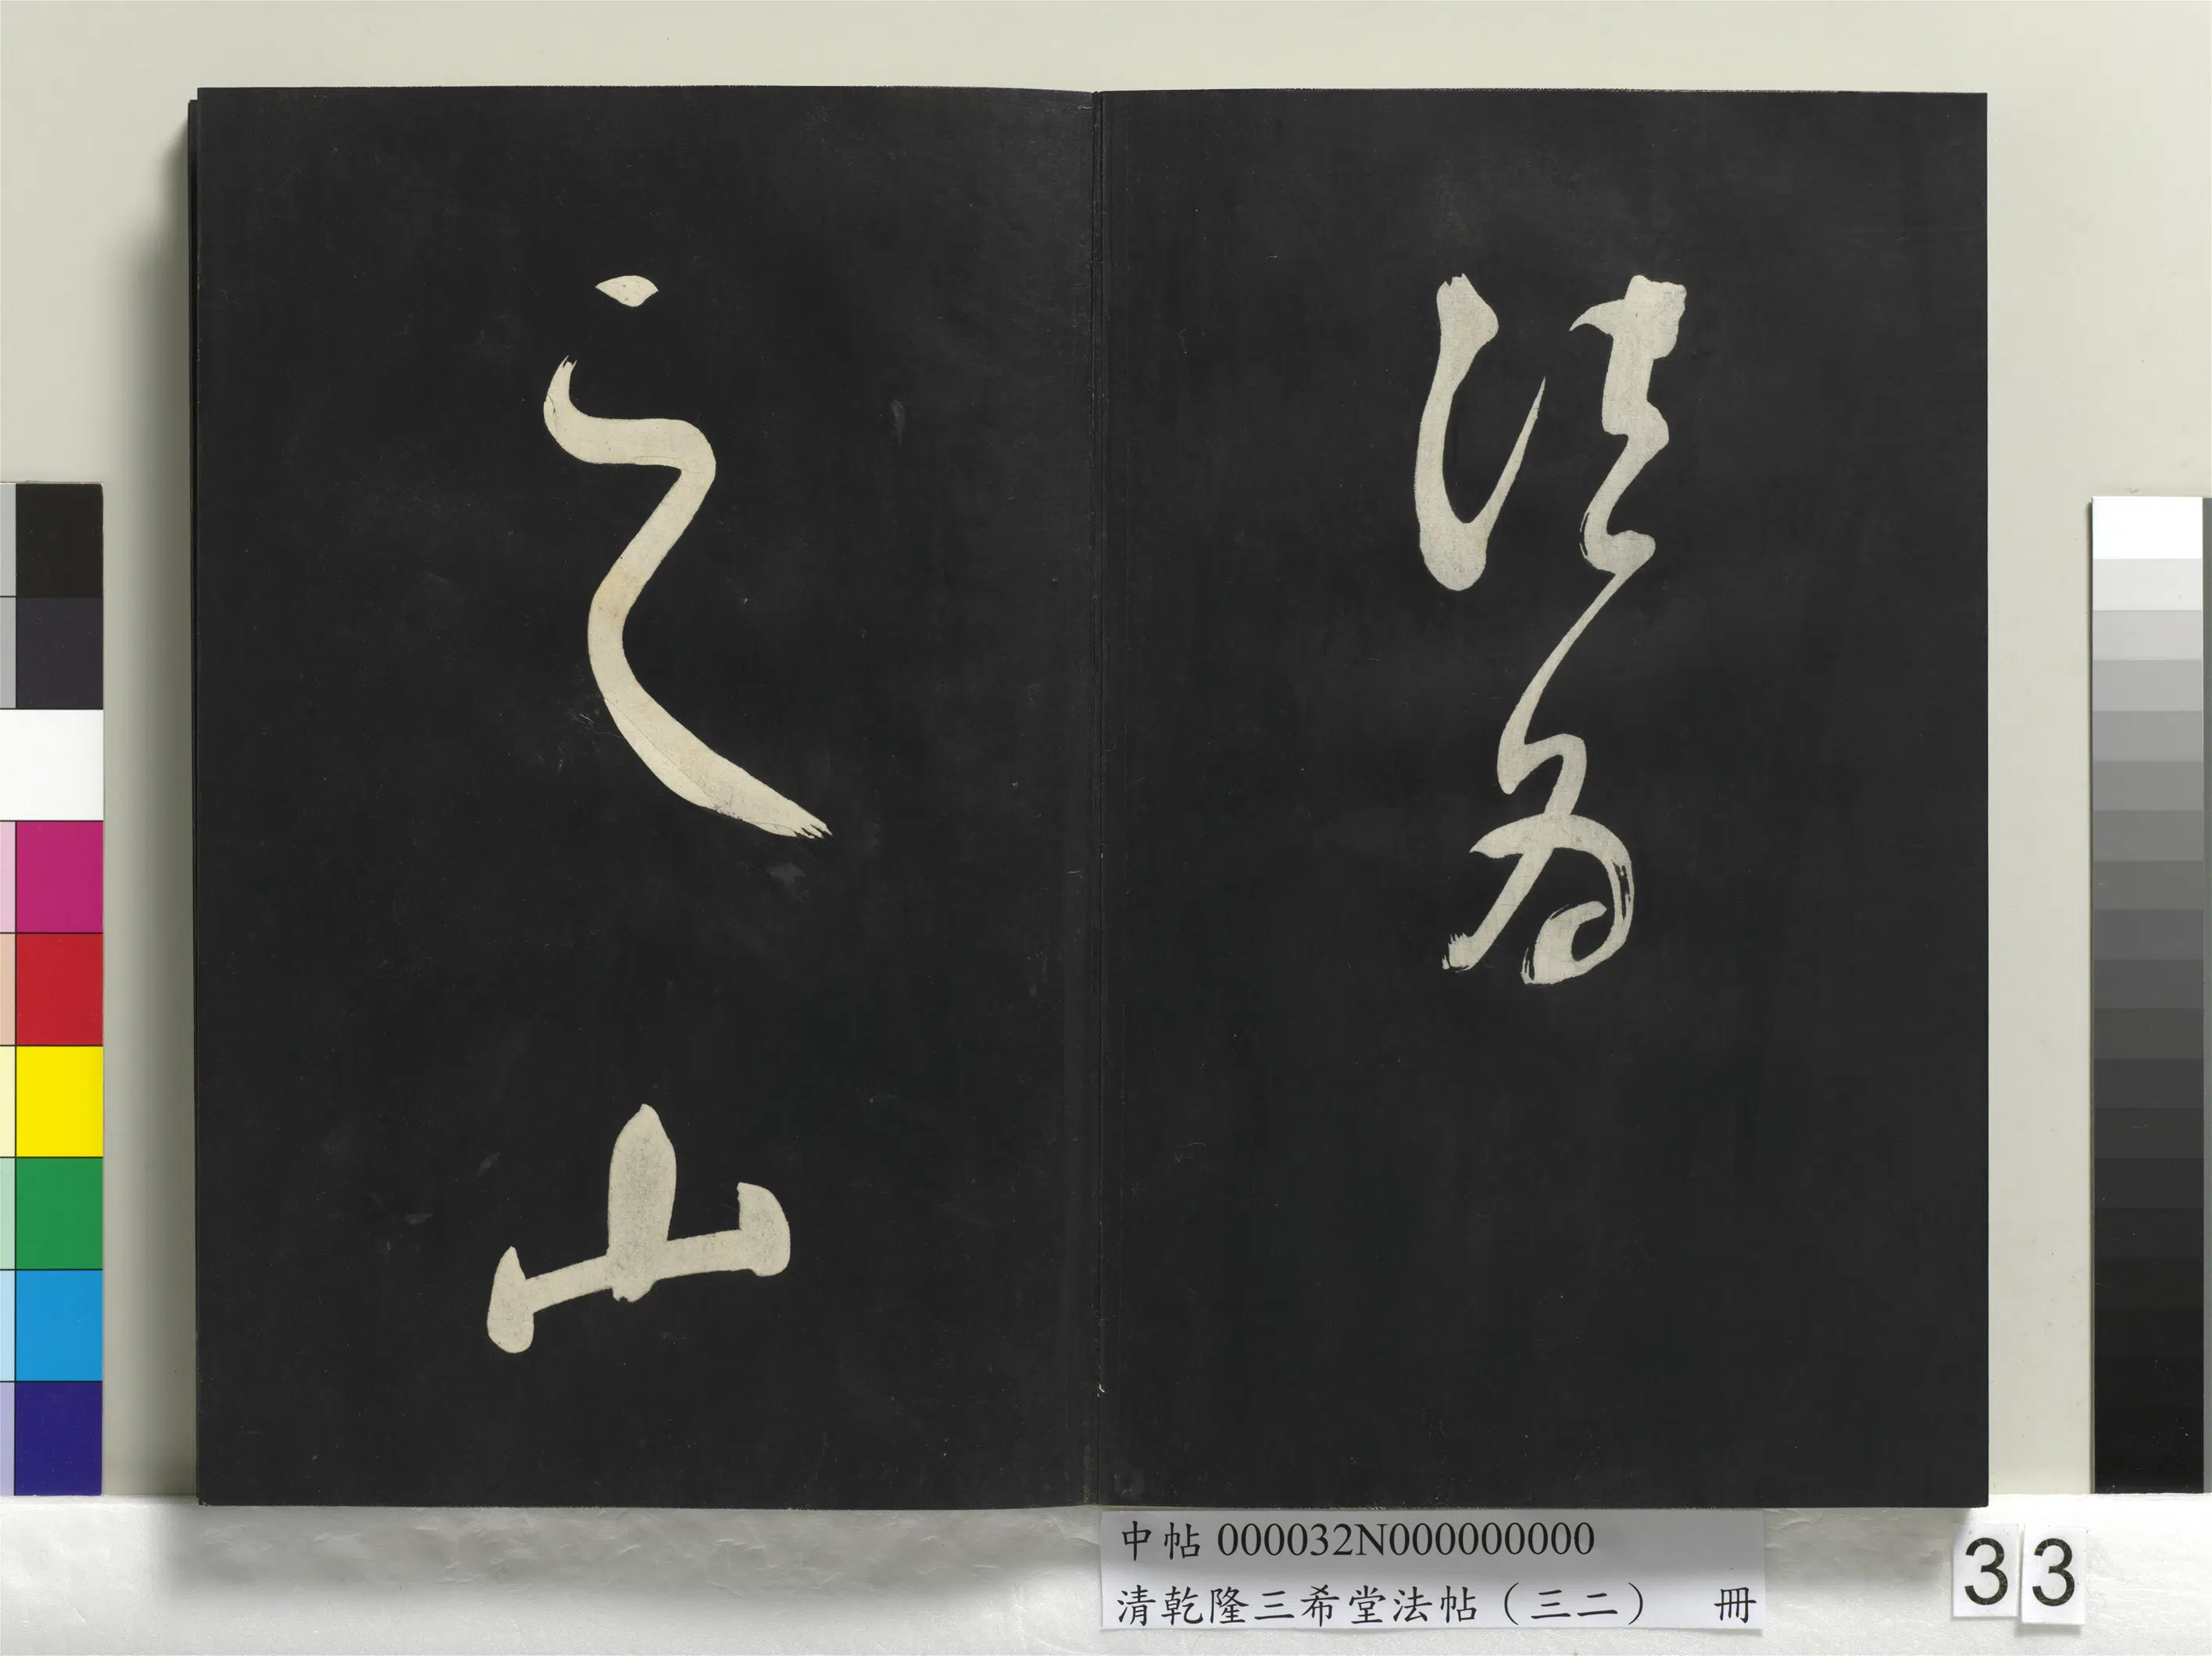 為
之山
中帖 000032N000000000
清乾隆三希堂法帖（三二） 冊
33